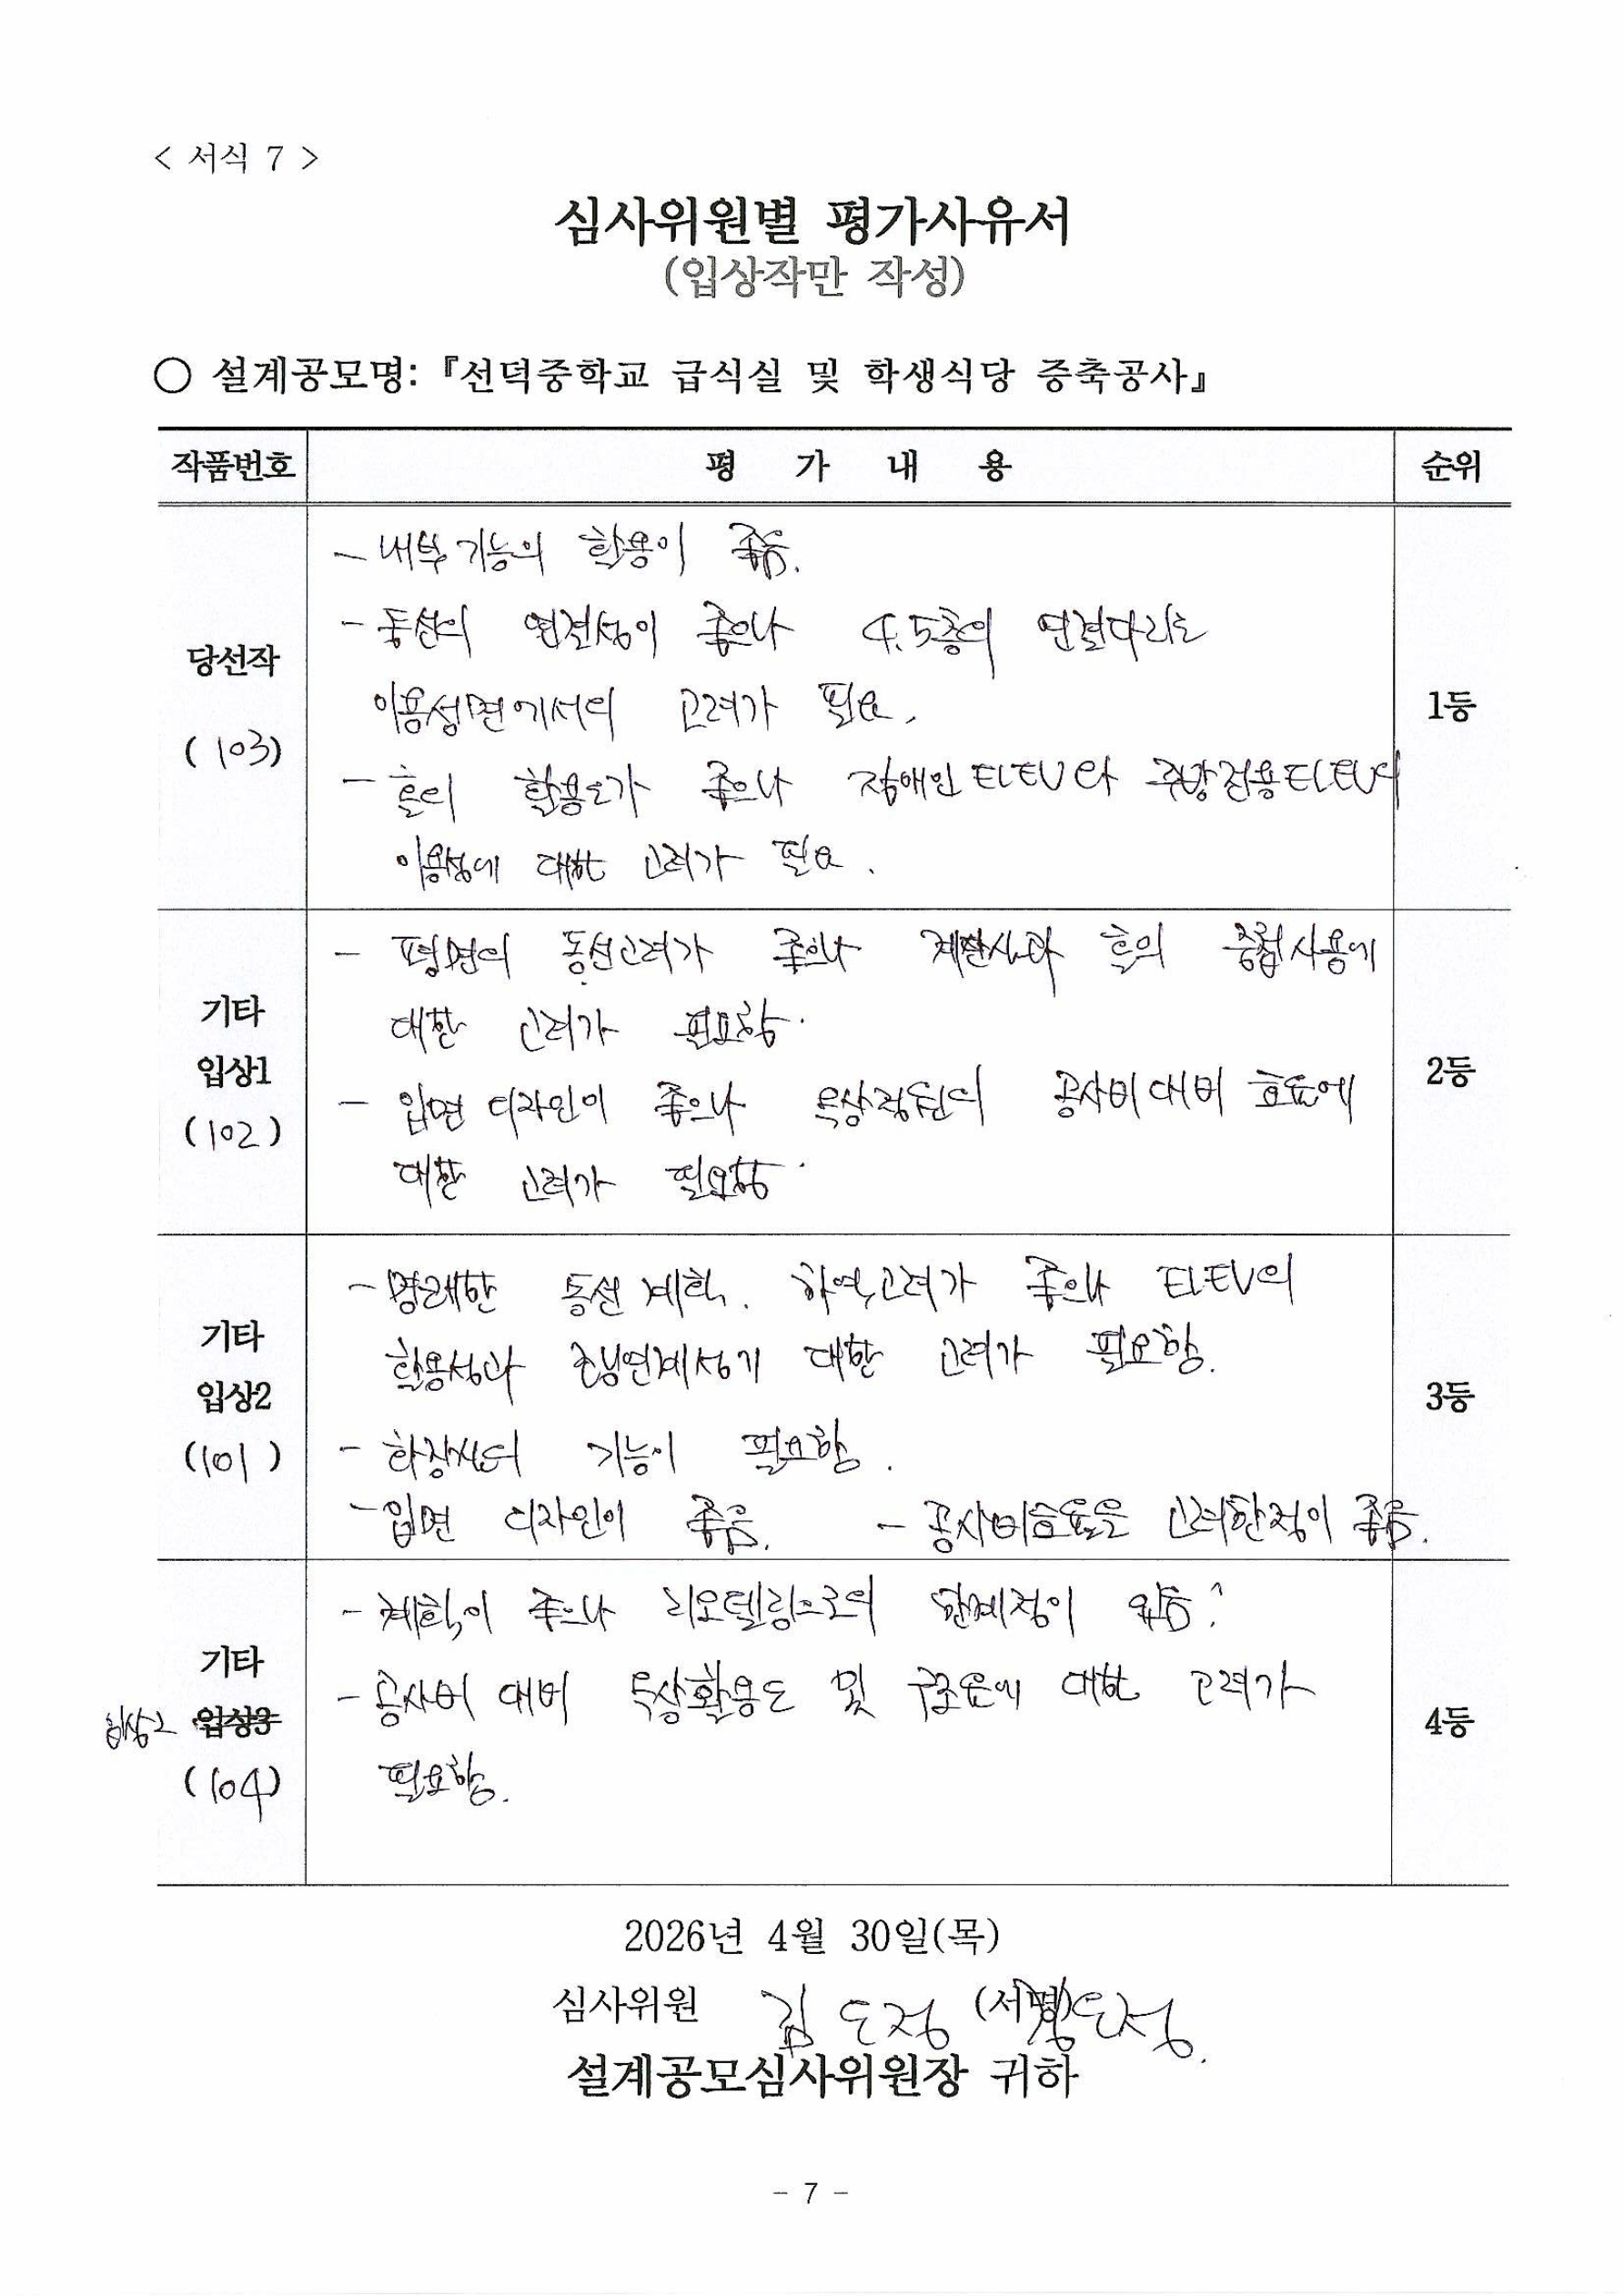 < 서식 7 >
심사위원별 평가사유서
(입상작만 작성)
○ 설계공모명: 『선덕중학교 급식실 및 학생식당 증축공사』
작품번호 평 가 내 용 순위
당선작
(103)
- 내부 기능의 활용이 좋음.
- 동선의 연결성이 좋으나 4.5층의 연결다리는
이용성면에서의 고려가 필요.
- 홀의 활용도가 좋으나 장애인 ELEV와 주방전용 ELEV의
이용성에 대한 고려가 필요.
1등
기타
입상1
(102)
- 평면의 동선고려가 좋으나 계단실과 홀의 중첩사용에
대한 고려가 필요함.
- 입면 디자인이 좋으나 옥상정원의 공사비 대비 효율에
대한 고려가 필요함.
2등
기타
입상2
(101)
- 명쾌한 동선 계획. 하역고려가 좋으나 ELEV의
활용성과 대한 고려가 필요함.
- 기능이 필요함.
- 입면 디자인이 좋음. - 공사비효율을 고려한점이 좋음.
3등
기타
입상2 입상3
(104)
- 계획이 좋으나 리모델링으로의 한계점이 있음.
- 공사비 대비 옥상활용도 및 대한 고려가
필요함.
4등
2026년 4월 30일(목)
심사위원 김도정 (서명) 김도정
설계공모심사위원장 귀하
- 7 -